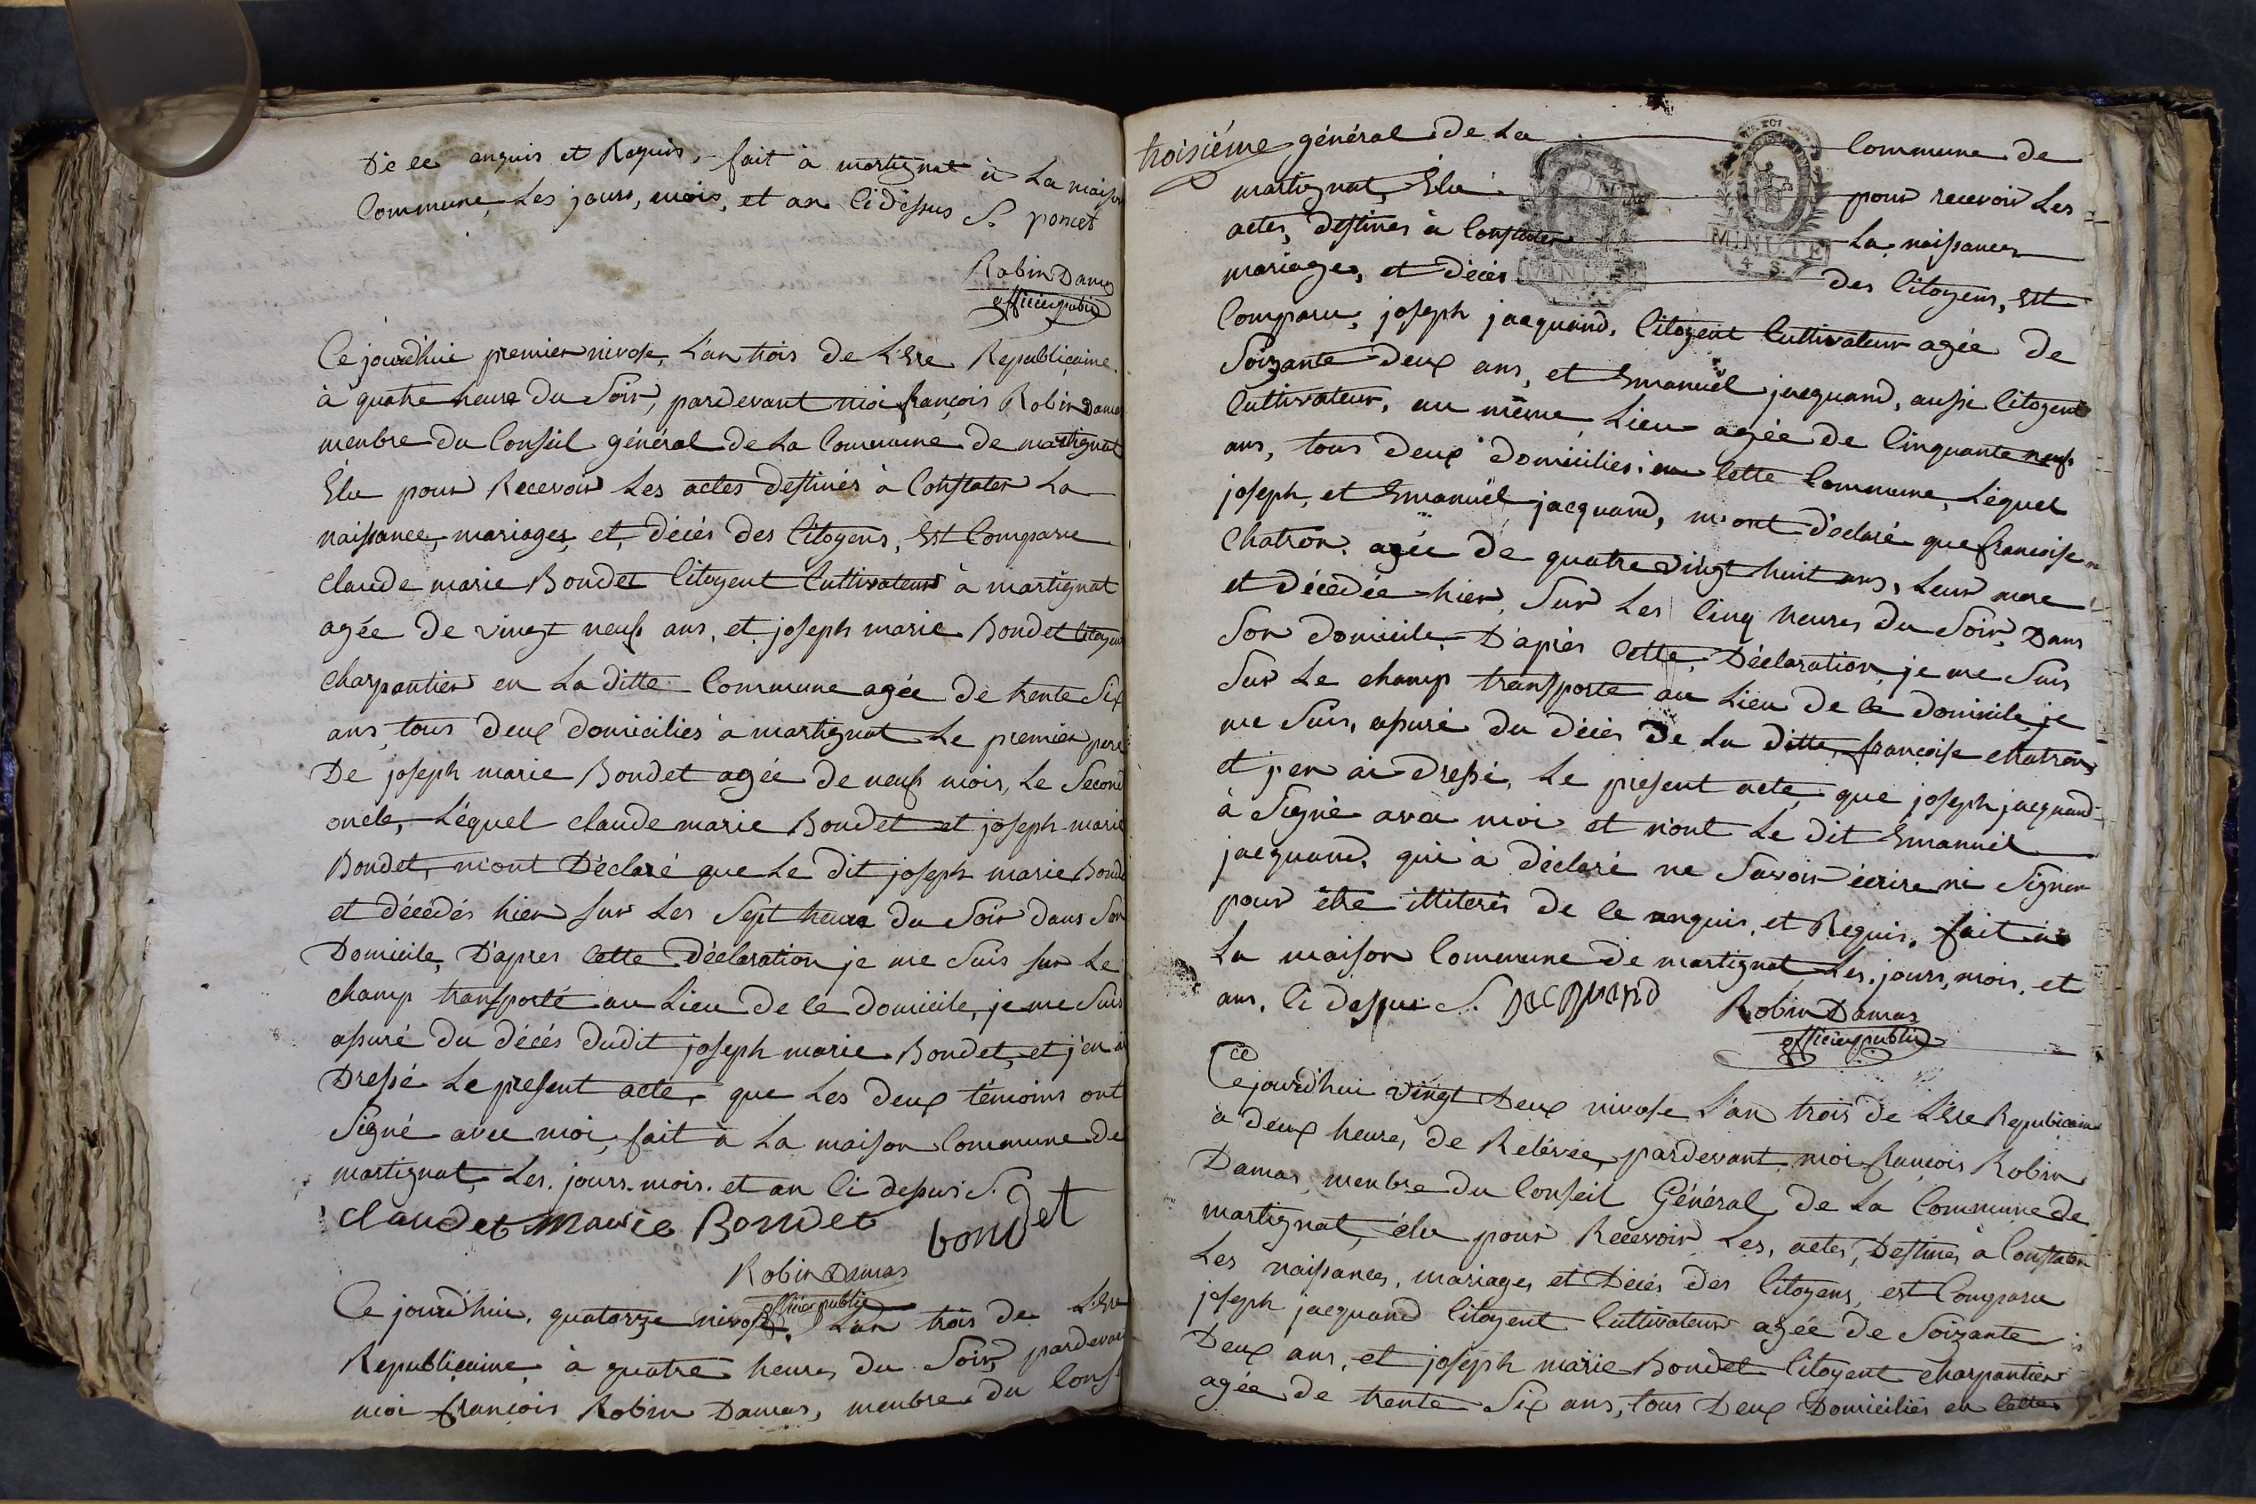 De ce anquis et Requis, fait à martignat à La maison
Commune, Les jours, mois, et an Cidessus S. poncet
Robin Damas
officier public
Ce jourd'hui premier nivose, L'an trois de L'Ere Republicaine.
à quatre heure Du Soir, pardevant moi françois Robin Damas
menbre du Conseil général de La Commune de martignat
Élu pour Recevoir Les actes destinés à Constater La
naissance, mariages, et, décés des Citoyens, Est Comparu
claude marie Bondet Citoyent Cultivateur à martignat
agée de vingt neuf ans, et joseph marie Bondet Citoyent
charpantier en La ditte Commune agée de trente Six
ans, tous deux domiciliés à martignat Le premier pere
De joseph marie Bondet agée de neuf mois, Le Second
oncle, Léquel claude marie Bondet et joseph marie
Bondet, m'ont Déclaré que Le dit joseph marie Bondet
et décédés hier sur Les Sept heure du Soir dans Son
Domicile, D'apres Cette Déclaration je me Suis sur Le
champ transporté au Lieu De ce domicile, je me Suis
assuré du décés dudit joseph marie Bondet, et j'en ai
Dressé Le present acte, que Les deux témoins ont
Signé avec moi, fait à La maison Commune de
martignat, Les. jours. mois. et an Ci dessus S.
claudet Marie Bondet bondet
Robin Damas
officier public
Ce jourd'hui, quatorze nivose, L'an trois de L'Ere
Republicaine, à quatre heures du Soir, pardevant
moi françois Robin Damas, menbre du Conseil
troisiéme général de La Commune de
martignat, Élu pour recevoir Les
actes, destinés à Constater La naissances
mariages, et décés des Citoyens, Est
Comparu, joseph jacquand, Citoyent Cultivateur agée de
Soizante deux ans, et Emanuël jacquand, aussi Citoyent
Cultivateur, au même Lieu agée de Cinquante neuf
ans, tous deux domiciliés en Cette Commune, Léquel
joseph, et Emanuël jacquand, m'ont déclaré que francoise
Chatron, agée de quatre vingt huit ans, Leur mere
et décedée hier, Sur Les Cinq heures du Soir, Dans
Son domicile, D'aprés Cette, Déclaration, je me Suis
Sur Le champ transporte au Lieu De ce domicile, je
me Suis, assuré du décés De La ditte, françoise chatron
et j'en ai dressé, Le present acte, que joseph jacquand
à Signé avec moi et n'ont Le dit Emanuël
jacquand, qui à déclaré ne Savoir écrire ni Signer
pour être illiterés de ce anquis, et Requis, fait à
La maison Commune de martignat Les, jours, mois, et
ans, Ci dessus S. JACQUAND
Robin Damas
officier public
Ce jourd'hui vingt Deux nivose L'an trois de L'Ere Republicaine
à deux heures, de Relévée, pardevant moi françois Robin
Damas, menbre du Conseil Général de La Commune de
martignat, élu pour Recevoir Les, actes, Destinés à Constater
Les naissances, mariages et Décés des Citoyens, est Comparu
joseph jacquand Citoyent Cultivateur agée de Soizante
Deux ans, et joseph marie Bondet Citoyent charpantier
agée de trente Six ans, tous Deux Domiciliés en Cette
MINUTE
MINUTE
4. S.